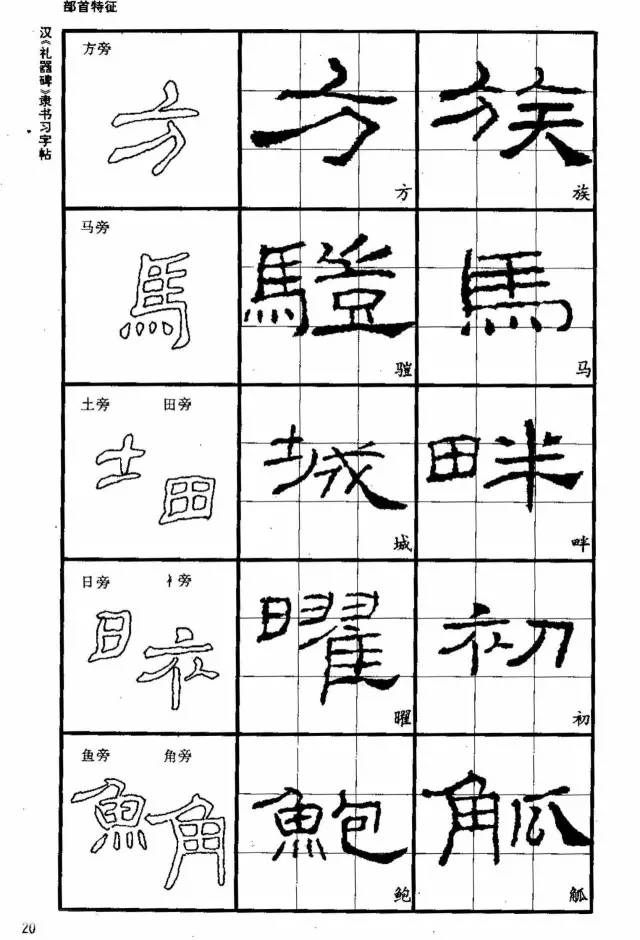 部首特征
汉《礼器碑》隶书习字帖
方旁
方
方
族
方
族
马旁
馬
騜
馬
骓
马
土旁 田旁
土 田
城
畔
城
畔
日旁 衤旁
日 衤
曜
初
曜
初
鱼旁 角旁
魚 角
鮑
觚
鲍
觚
20